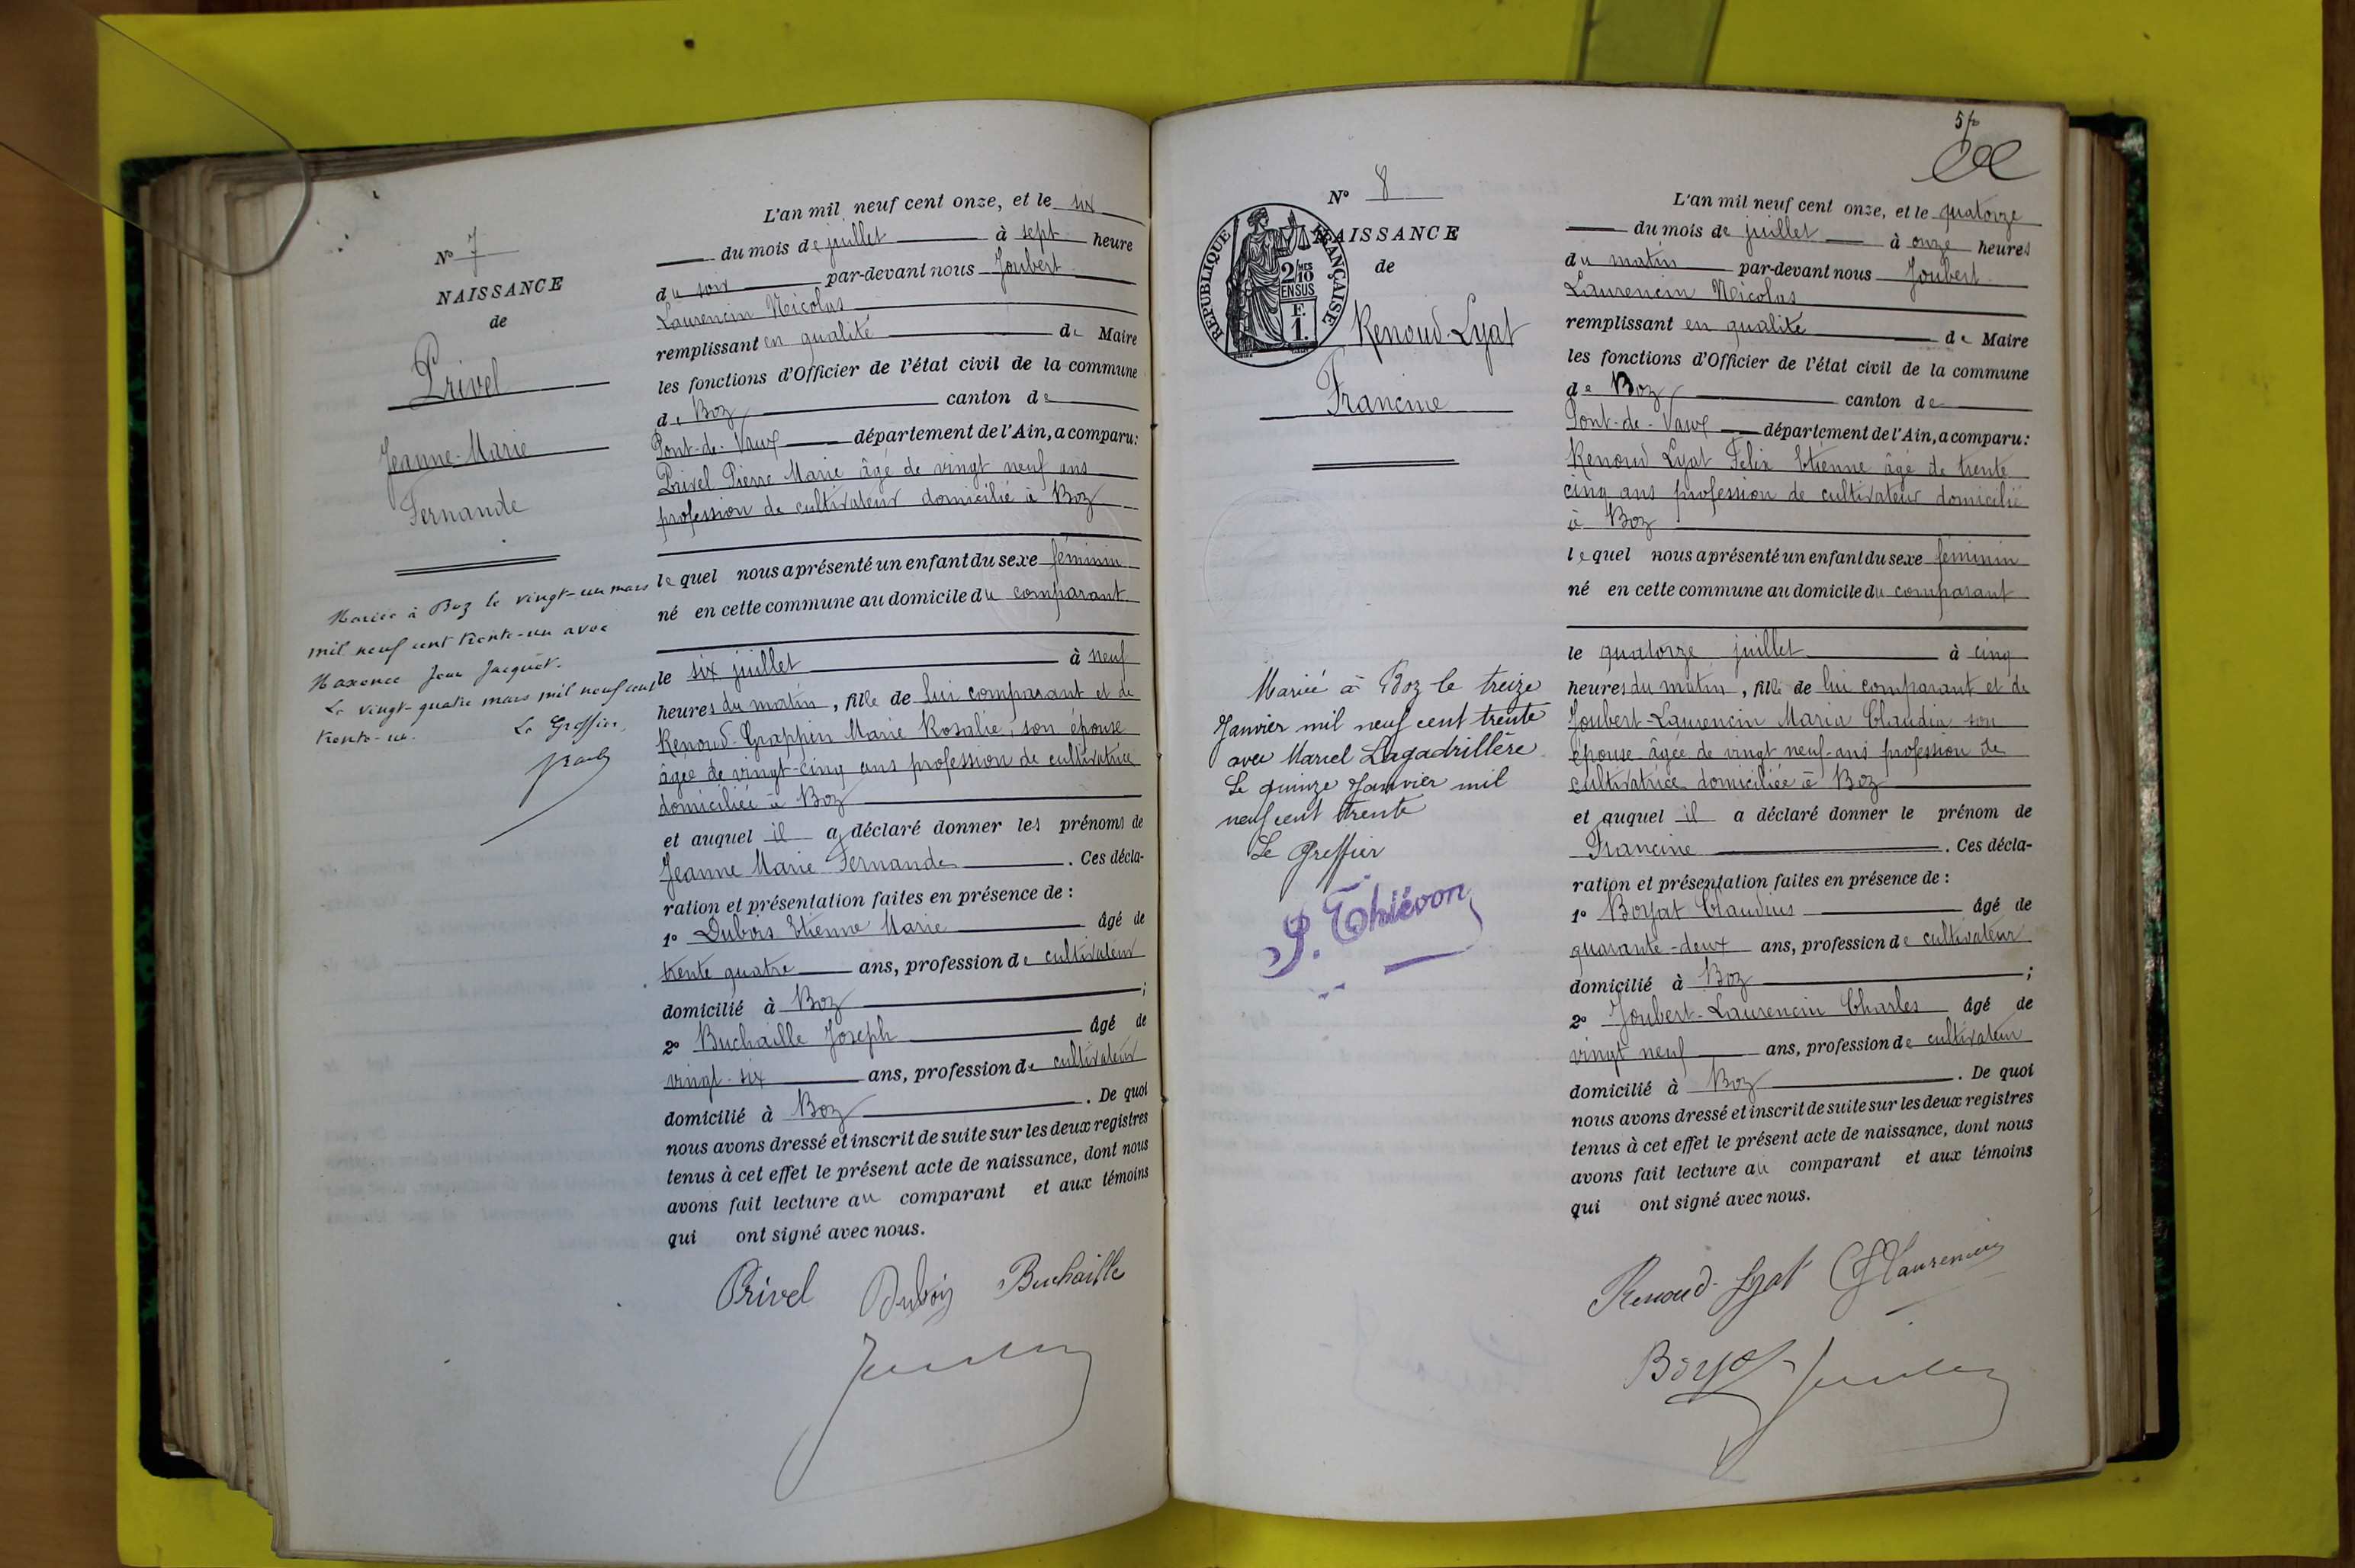 Nº 7
NAISSANCE
de
Privel
Jeanne-Marie
Fernande
Mariée à Boz le vingt-un mars
mil neuf cent trente-un avec
Maxence Jean Jacquet.
Le vingt-quatre mars mil neuf cent
trente-un. Le Greffier,
L'an mil neuf cent onze, et le six
du mois de juillet à sept heure
du soir par-devant nous Joubert
Laurencin Nicolas
remplissant en qualité de Maire
les fonctions d'Officier de l'état civil de la commune
de Boz canton de
Pont-de-Vaux département de l'Ain, a comparu:
Privel Pierre Marie âgé de vingt neuf ans
profession de cultivateur domicilié à Boz
lequel nous a présenté un enfant du sexe féminin
né en cette commune au domicile du comparant
le six juillet à neuf
heures du matin, fille de lui comparant et de
Renoud-Grappin Marie Rosalie, son épouse
âgée de vingt-cinq ans profession de cultivatrice
domiciliée à Boz
et auquel il a déclaré donner les prénoms de
Jeanne Marie Fernande. Ces décla-
ration et présentation faites en présence de :
1º Dubois Etienne Marie âgé de
trente quatre ans, profession de cultivateur
domicilié à Boz ;
2º Buchaille Joseph âgé de
vingt-six ans, profession de cultivateur
domicilié à Boz. De quoi
nous avons dressé et inscrit de suite sur les deux registres
tenus à cet effet le présent acte de naissance, dont nous
avons fait lecture au comparant et aux témoins
qui ont signé avec nous.
Privel Dubois Buchaille
Nº 8
NAISSANCE
de
RÉPUBLIQUE FRANÇAISE
2/10 MES
EN SUS
F.
1.
Renoud-Lyat
Francine
Mariée à Boz le treize
Janvier mil neuf cent trente
avec Marcel Lagadrillère
Le quinze Janvier mil
neuf cent trente
Le Greffier
P. Thiévon
L'an mil neuf cent onze, et le quatorze
du mois de juillet à onze heures
du matin par-devant nous Joubert
Laurencin Nicolas
remplissant en qualité de Maire
les fonctions d'Officier de l'état civil de la commune
de Boz canton de
Pont-de-Vaux département de l'Ain, a comparu:
Renoud Lyat Felix Etienne âgé de trente
cinq ans profession de cultivateur domicilié
à Boz
lequel nous a présenté un enfant du sexe féminin
né en cette commune au domicile du comparant
le quatorze juillet à cinq
heures du matin, fille de lui comparant et de
Joubert-Laurencin Maria Claudia son
épouse âgée de vingt neuf-ans profession de
cultivatrice domiciliée à Boz
et auquel il a déclaré donner le prénom de
Francine. Ces décla-
ration et présentation faites en présence de :
1º Boyat Claudius âgé de
quarante-deux ans, profession de cultivateur
domicilié à Boz ;
2º Joubert-Laurencin Charles âgé de
vingt neuf ans, profession de cultivateur
domicilié à Boz. De quoi
nous avons dressé et inscrit de suite sur les deux registres
tenus à cet effet le présent acte de naissance, dont nous
avons fait lecture au comparant et aux témoins
qui ont signé avec nous.
Renoud-Lyat
Boyat